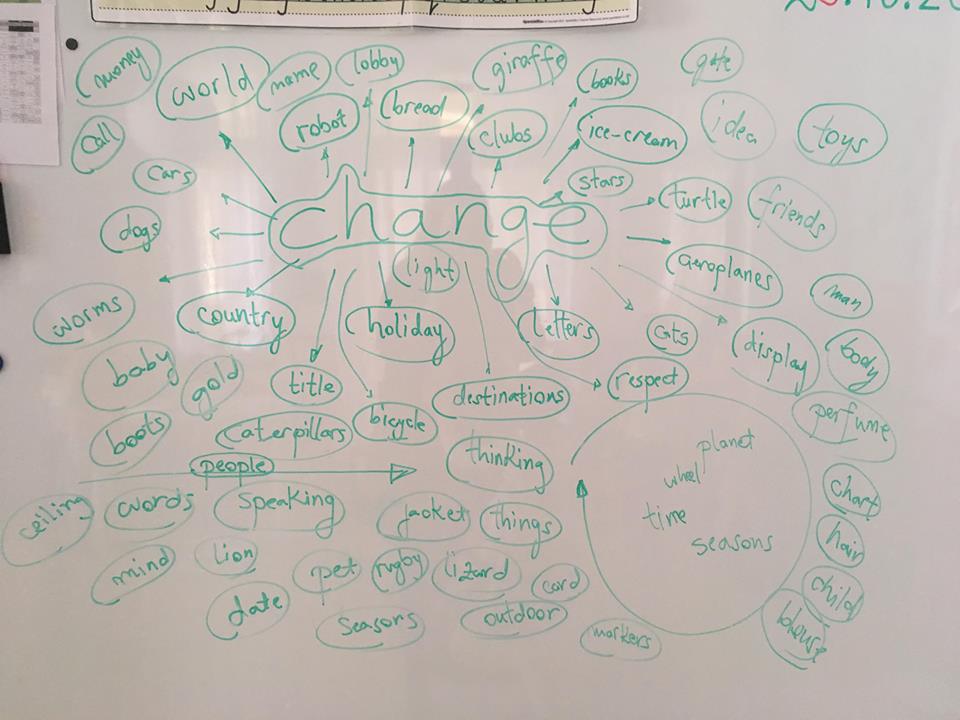 money
world
name
lobby
giraffe
books
gate
call
robot
bread
clubs
ice-cream
idea
toys
cars
stars
turtle
friends
dogs
change
light
aeroplanes
man
worms
country
holiday
letters
cats
display
body
baby
gold
title
bicycle
destinations
respect
perfume
boots
caterpillars
people
thinking
planet
wheel
time
seasons
chart
ceiling
words
speaking
jacket
things
hair
mind
lion
pet
rugby
lizard
card
child
date
seasons
outdoor
markers